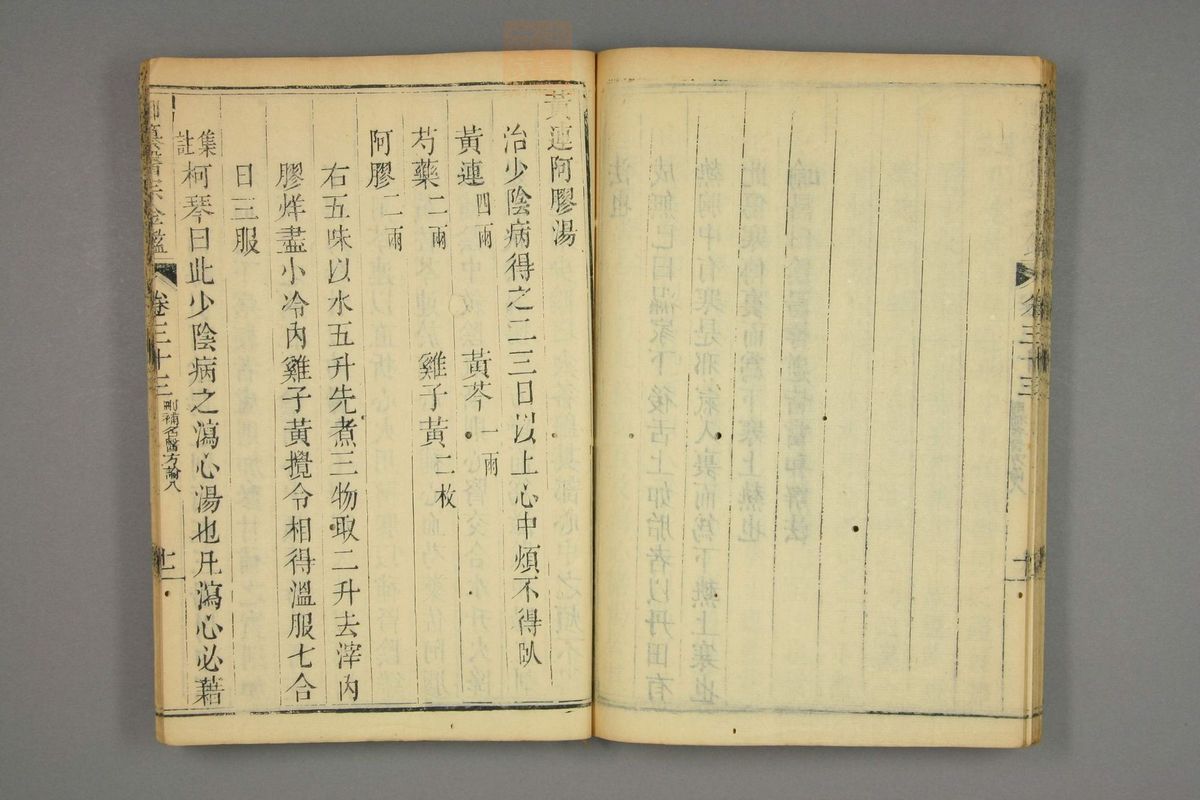 黃連阿膠湯
治少陰病得之二三日以上心中煩不得臥
黃連四兩 黃芩一兩
芍藥二兩 雞子黃二枚
阿膠二兩
右五味以水五升先煮三物取二升去滓內
膠烊盡小冷內雞子黃攪令相得溫服七合
日三服
集註柯琴曰此少陰病之瀉心湯也凡瀉心必藉
御纂醫宗金鑑 卷三十三 刪補名醫方論八 十二
卷三十三